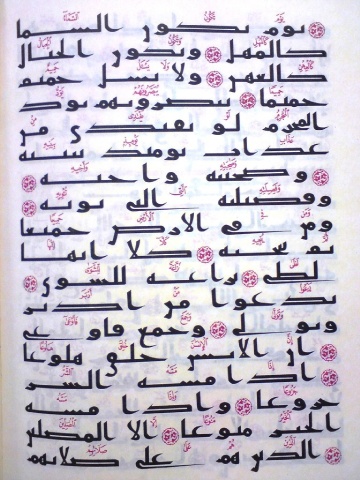 يوم تكون السما
كالمهل وتكون الجبال
كالعهن ولا يسل حميم
حميما يبصرونهم يود
المجرم لو يفتدي من
عذاب يومئذ ببنيه
وصحبته واخيه
وفصيلته التي تويه
ومن في الارض جميعا
ثم ينجيه كلا انها
لظى نزاعة للشوى
تدعوا من ادبر
وتولى وجمع فاوعى
ان الانسن خلق هلوعا
اذا مسه الشر
جزوعا واذا مسه
الخير منوعا الا المصلين
الذين هم على صلاتهم